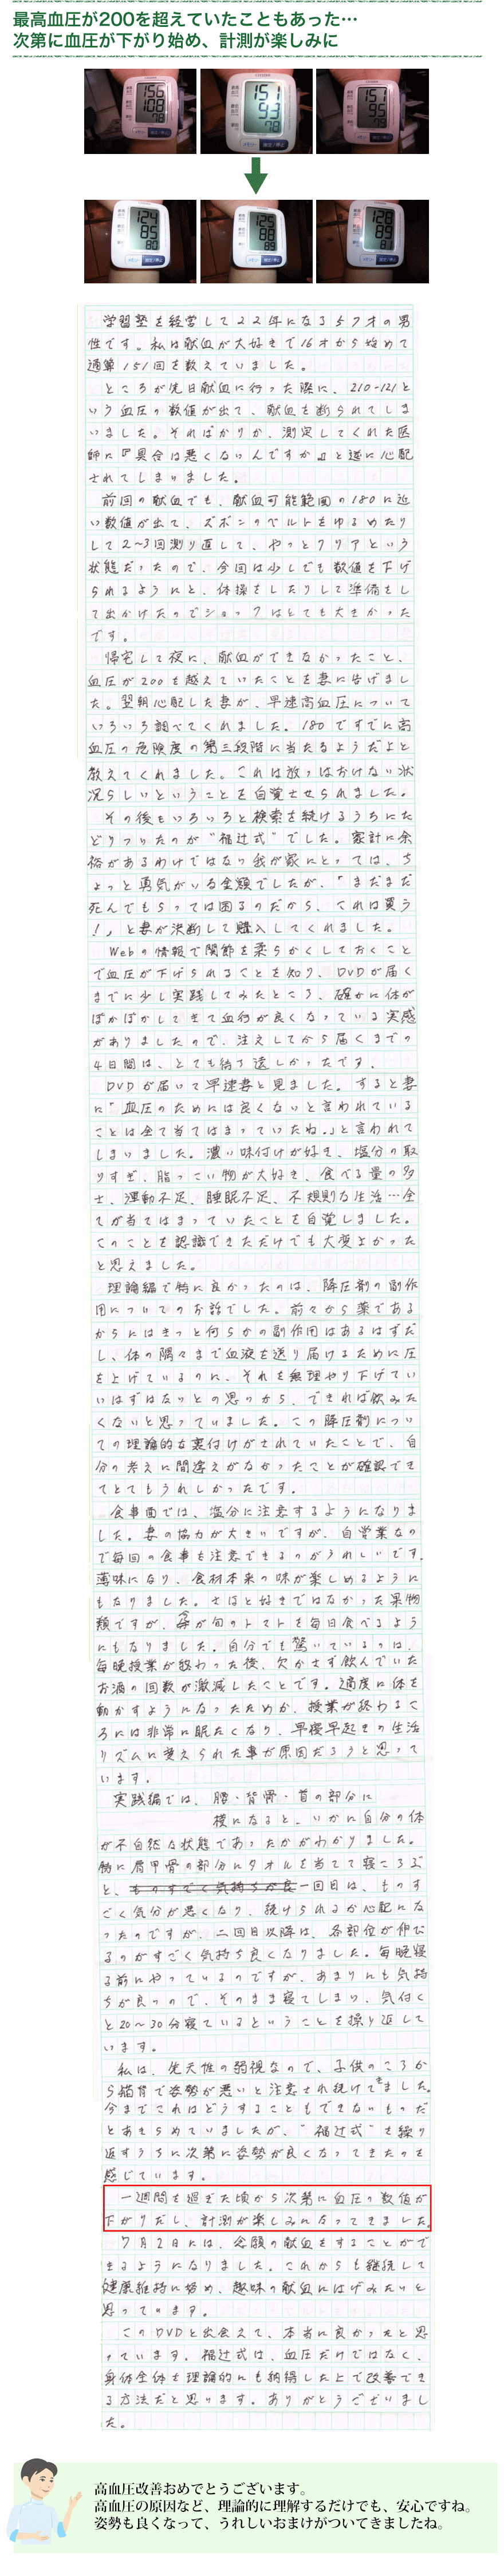 最高血圧が200を超えていたこともあった…
次第に血圧が下がり始め、計測が楽しみに
CITIZEN
156
108
78
151
93
78
151
95
78
124
85
80
125
88
80
128
89
80
学習塾を経営して２２年になる５７才の男
性です。私は献血が大好きで16才から始めて
通算151回を数えていました。
ところが先日献血に行った際に、210-121と
いう血圧の数値が出て、献血を断られてしま
いました。そればかりか、測定してくれた医
師に『具合は悪くないんですか』と逆に心配
されてしまいました。
前回の献血でも、献血可能範囲の180に近
い数値が出て、ズボンのベルトをゆるめたり
して2～3回測り直して、やっとクリアという
状態だったので、今回は少しでも数値を下げ
られるようにと、体操をしたりして準備をし
て出かけたのでショックはとても大きかった
です。
帰宅して夜に、献血ができなかったこと、
血圧が200も越えていたことを妻に告げまし
た。翌朝心配した妻が、早速高血圧について
いろいろ調べてくれました。180ですでに高
血圧の危険度の第三段階に当たるようだよと
教えてくれました。これは放っておけない状
況らしいということを自覚させられました。
その後もいろいろと検索を続けるうちにた
どりついたのが“福辻式”でした。家計に余
裕があるわけではない我が家にとっては、ち
ょっと勇気がいる金額でしたが、「まだまだ
死んでもらっては困るのだから、これは買う
！」と妻が決断して購入してくれました。
Webの情報で関節を柔らかくしておくこと
で血圧が下げられることを知り、DVDが届く
までに少し実践してみたところ、確かに体が
ぽかぽかしてきて血行が良くなっている実感
がありましたので、注文してから届くまでの
4日間は、とても待ち遠しかったです。
DVDが届いて早速妻と見ました。すると妻
に「血圧のためには良くないと言われている
ことは全て当てはまっていたね。」と言われて
しまいました。濃い味付けが好き、塩分の取
りすぎ、脂っこい物が大好き、食べる量の多
さ、運動不足、睡眠不足、不規則な生活…全
てが当てはまっていたことを自覚しました。
このことを認識できただけでも大変よかった
と思えました。
理論編で特に良かったのは、降圧剤の副作
用についてのお話でした。前々から薬である
からにはきっと何らかの副作用はあるはずだ
し、体の隅々まで血液を送り届けるために圧
を上げているのに、それを無理やり下げてい
いはずはないとの思いから、できれば飲みた
くないと思っていました。この降圧剤につい
ての理論的な裏付けがされていたことで、自
分の考えに間違えがなかったことが確認でき
てとてもうれしかったです。
食事面では、塩分に注意するようになりま
した。妻の協力が大きいですが、自営業なの
で毎回の食事も注意できるのがうれしいです。
薄味になり、食材本来の味が楽しめるように
もなりました。さほど好きではなかった果物
類ですが、今が旬のトマトを毎日食べるよう
にもなりました。自分でも驚いているのは、
毎晩授業が終わった後、欠かさず飲んでいた
お酒の回数が激減したことです。適度に体を
動かすようになったためか、授業が終わるこ
ろには非常に眠たくなり、早寝早起きの生活
リズムに変えられた事が原因だろうと思って
います。
実践編では、腰・背骨・首の部分に
横になると、いかに自分の体
が不自然な状態であったかがわかりました。
特に肩甲骨の部分にタオルを当てて寝ころぶ
と、ものすごく気持ちが良一回目は、ものす
ごく気分が悪くなり、続けられるか心配にな
ったのですが、二回目以降は、各部位が伸び
るのがすごく気持ち良くなりました。毎晩寝
る前にやっているのですが、あまりにも気持
ちが良いので、そのまま寝てしまい、気付く
と20～30分寝ているということを繰り返して
います。
私は、先天性の弱視なので、子供のころか
ら猫背で姿勢が悪いと注意され続けてきました。
今までこれはどうすることもできないものだ
とあきらめていましたが、“福辻式”を繰り
返すうちに次第に姿勢が良くなってきたのを
感じています。
一週間を過ぎた頃から次第に血圧の数値が
下がりだし、計測が楽しみになってきました。
7月2日には、念願の献血をすることがで
きるようになりました。これからも継続して
健康維持に努め、趣味の献血にはげみたいと
思っています。
このDVDと出会えて、本当に良かったと思
っています。福辻式は、血圧だけではなく、
身体全体を理論的にも納得した上で改善でき
る方法だと思います。ありがとうございまし
た。
高血圧改善おめでとうございます。
高血圧の原因など、理論的に理解するだけでも、安心ですね。
姿勢も良くなって、うれしいおまけがついてきましたね。